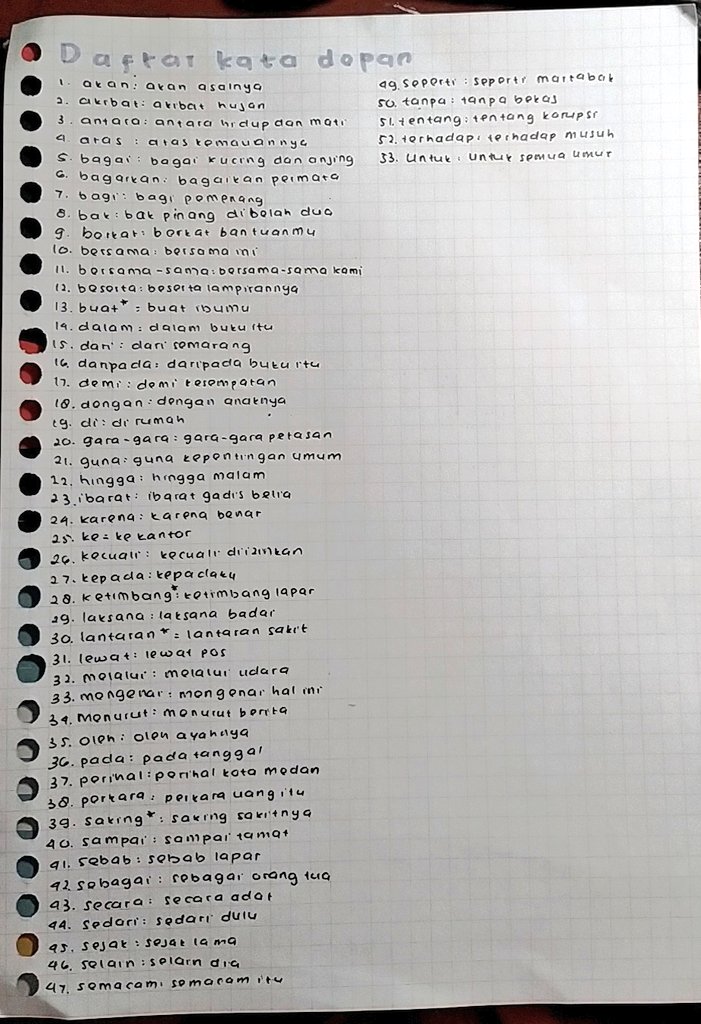 Daftar kata depan
1. akan: akan asalnya
2. akibat: akibat hujan
3. antara: antara hidup dan mati
4. atas : atas kemauannya
5. bagai: bagai kucing dan anjing
6. bagaikan: bagaikan permata
7. bagi: bagi pemenang
8. bak: bak pinang dibelah dua
9. berkat: berkat bantuanmu
10. bersama: bersama ini
11. bersama-sama: bersama-sama kami
12. beserta: beserta lampirannya
13. buat*: buat ibumu
14. dalam: dalam buku itu
15. dari: dari semarang
16. daripada: daripada buku itu
17. demi: demi kesempatan
18. dengan: dengan anaknya
19. di: di rumah
20. gara-gara: gara-gara petasan
21. guna: guna kepentingan umum
22. hingga: hingga malam
23. ibarat: ibarat gadis belia
24. karena: karena benar
25. ke: ke kantor
26. kecuali: kecuali diizinkan
27. kepada: kepadaku
28. ketimbang*: ketimbang lapar
29. laksana: laksana badar
30. lantaran*: lantaran sakit
31. lewat: lewat pos
32. melalui: melalui udara
33. mengenai: mengenai hal ini
34. Menurut: menurut berita
35. oleh: oleh ayahnya
36. pada: pada tanggal
37. perihal: perihal kota medan
38. perkara: perkara uang itu
39. saking*: saking sakitnya
40. sampai: sampai tamat
41. sebab: sebab lapar
42. sebagai: sebagai orang tua
43. secara: secara adat
44. sedari: sedari dulu
45. sejak: sejak lama
46. selain: selain dia
47. semacam: semacam itu
49. seperti: seperti martabak
50. tanpa: tanpa bekas
51. tentang: tentang korupsi
52. terhadap: terhadap musuh
53. Untuk: untuk semua umur